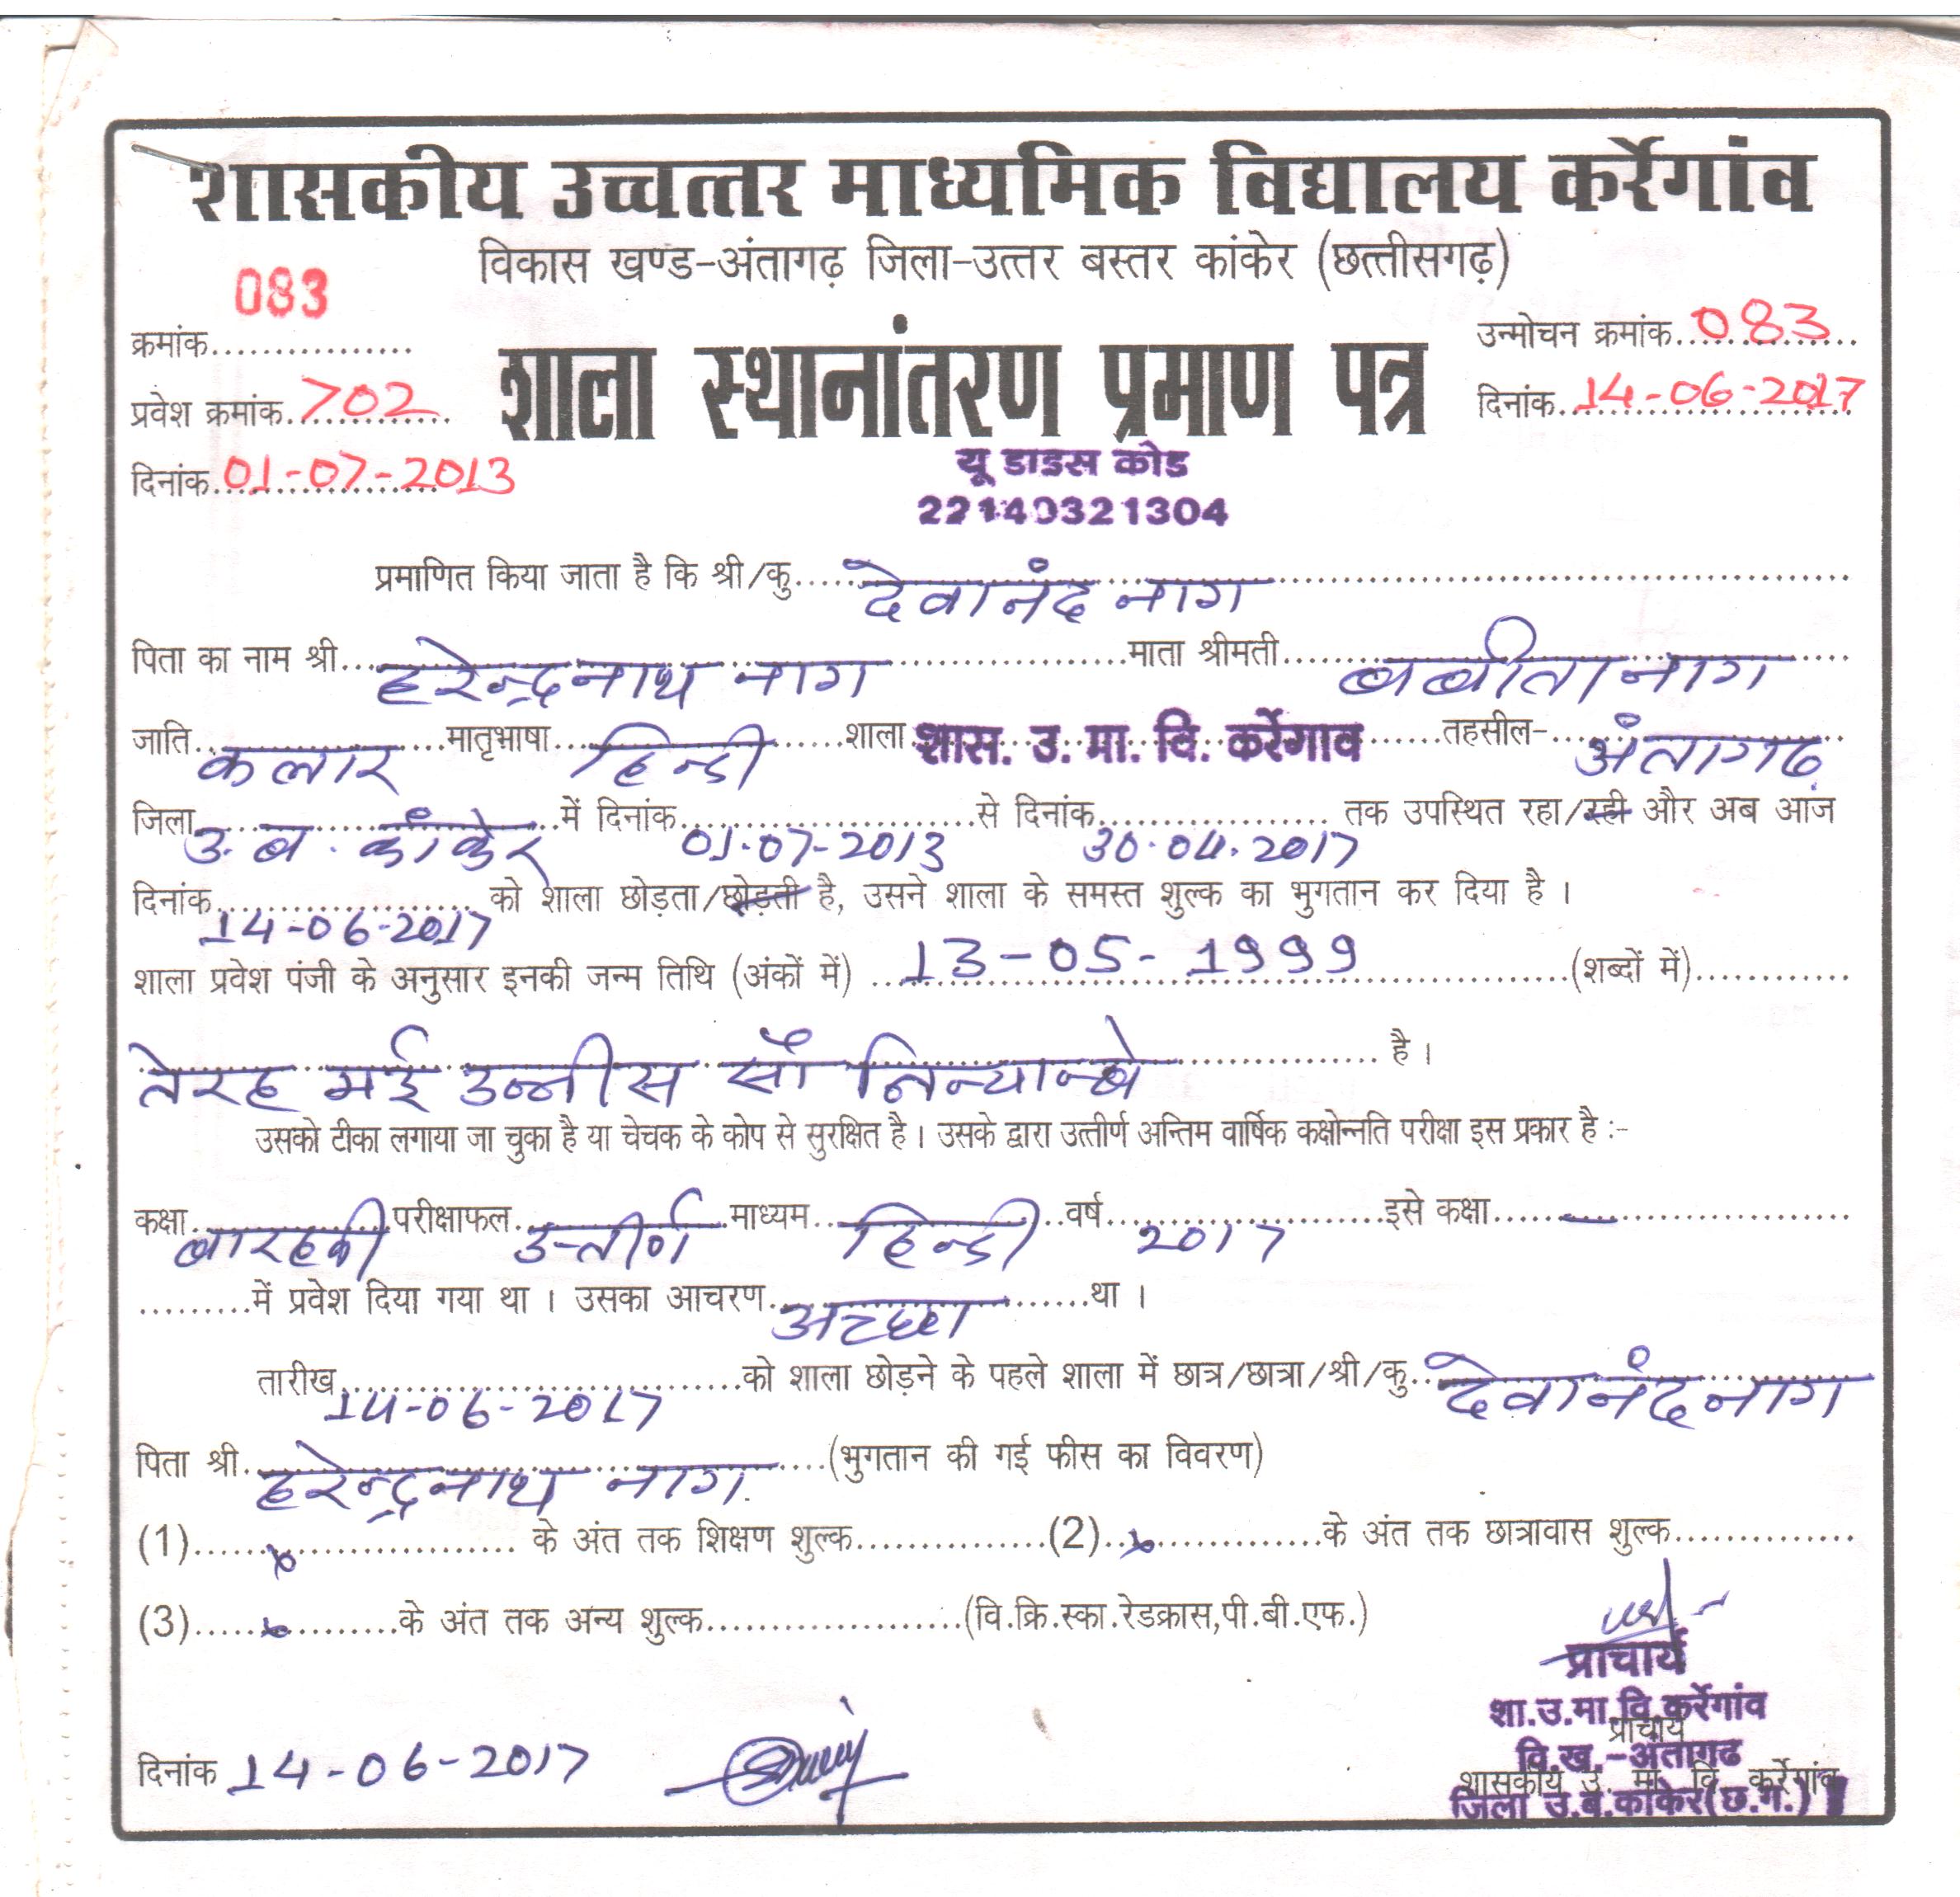 शासकीय उच्चत्तर माध्यमिक विद्यालय कर्रेगांव
विकास खण्ड-अंतागढ़ जिला-उत्तर बस्तर कांकेर (छत्तीसगढ़)
083
क्रमांक................
उन्मोचन क्रमांक 083
शाला स्थानांतरण प्रमाण पत्र
प्रवेश क्रमांक 702
दिनांक 14-06-2017
दिनांक 01-07-2013
यू डाइस कोड
22140321304
प्रमाणित किया जाता है कि श्री/कु. देवानंद नाग
पिता का नाम श्री हरेन्द्रनाथ नाग माता श्रीमती बबीता नाग
जाति कलार मातृभाषा हिन्दी शाला शास. उ. मा. वि. कर्रेगाव तहसील- अंतागढ़
जिला उ. ब. कांकेर में दिनांक 01-07-2013 से दिनांक 30.04.2017 तक उपस्थित रहा/रही और अब आज
दिनांक 14-06-2017 को शाला छोड़ता/छोड़ती है, उसने शाला के समस्त शुल्क का भुगतान कर दिया है ।
शाला प्रवेश पंजी के अनुसार इनकी जन्म तिथि (अंकों में) 13-05-1999 (शब्दों में)
तेरह मई उन्नीस सौ निन्यान्बे है ।
उसको टीका लगाया जा चुका है या चेचक के कोप से सुरक्षित है । उसके द्वारा उत्तीर्ण अन्तिम वार्षिक कक्षोन्नति परीक्षा इस प्रकार है :-
कक्षा बारहवी परीक्षाफल उत्तीर्ण माध्यम हिन्दी वर्ष 2017 इसे कक्षा —
में प्रवेश दिया गया था । उसका आचरण अच्छा था ।
तारीख 14-06-2017 को शाला छोड़ने के पहले शाला में छात्र/छात्रा/श्री/कु. देवानंद नाग
पिता श्री हरेन्द्रनाथ नाग (भुगतान की गई फीस का विवरण)
(1) के अंत तक शिक्षण शुल्क (2) के अंत तक छात्रावास शुल्क
(3) के अंत तक अन्य शुल्क (वि.क्रि.स्का.रेडक्रास,पी.बी.एफ.)
प्राचार्य
शा.उ.मा.वि.कर्रेगांव
प्राचार्य
वि.ख.-अंतागढ
शासकीय उ. मा. वि. कर्रेगांव
जिला उ.ब.कांकेर(छ.ग.)
दिनांक 14-06-2017